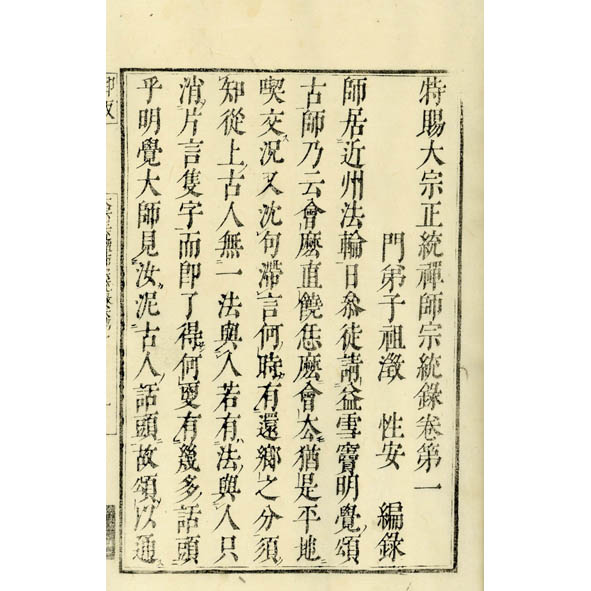 特賜大宗正統禪師宗統錄卷第一
門弟子祖澂 性安 編錄
師居近州法輪日叅徒請益雪竇明覺頌
古師乃云會麼直饒恁麼會去猶是平地
喫交況又沈句滯言何時有還鄉之分須
知從上古人無一法與人若有法與人只
消片言隻字而即了得何更有幾多話頭
乎明覺大師見汝泥古人話頭故頌以通